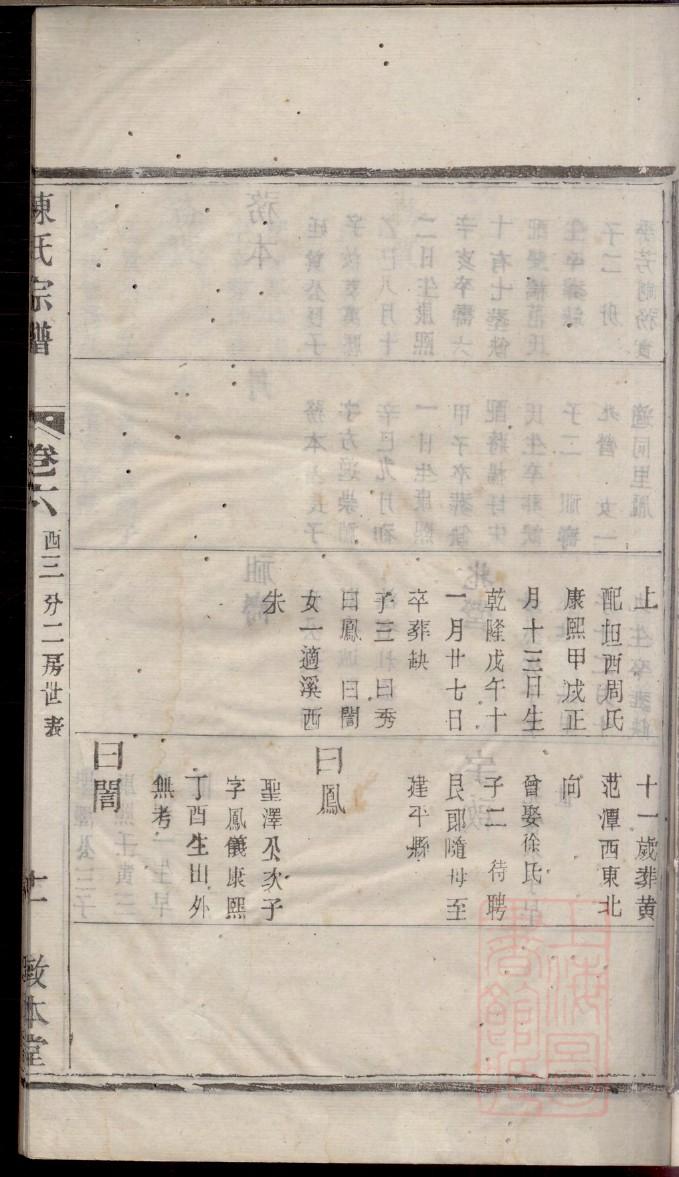 上
配担西周氏
康熙甲戌正
月十三日生
乾隆戊午十
一月廿七日
卒葬缺
子三曰秀
曰鳳曰誾
女一適溪西
朱
十一歲葬黄
范潭西東北
向
曾娶徐氏
子二待聘
艮郎隨母至
建平縣
曰鳳
聖澤公次子
字鳳儀康熙
丁酉生出外
無考
曰誾
陳氏宗譜
卷六
西三分二房世表
敦本堂